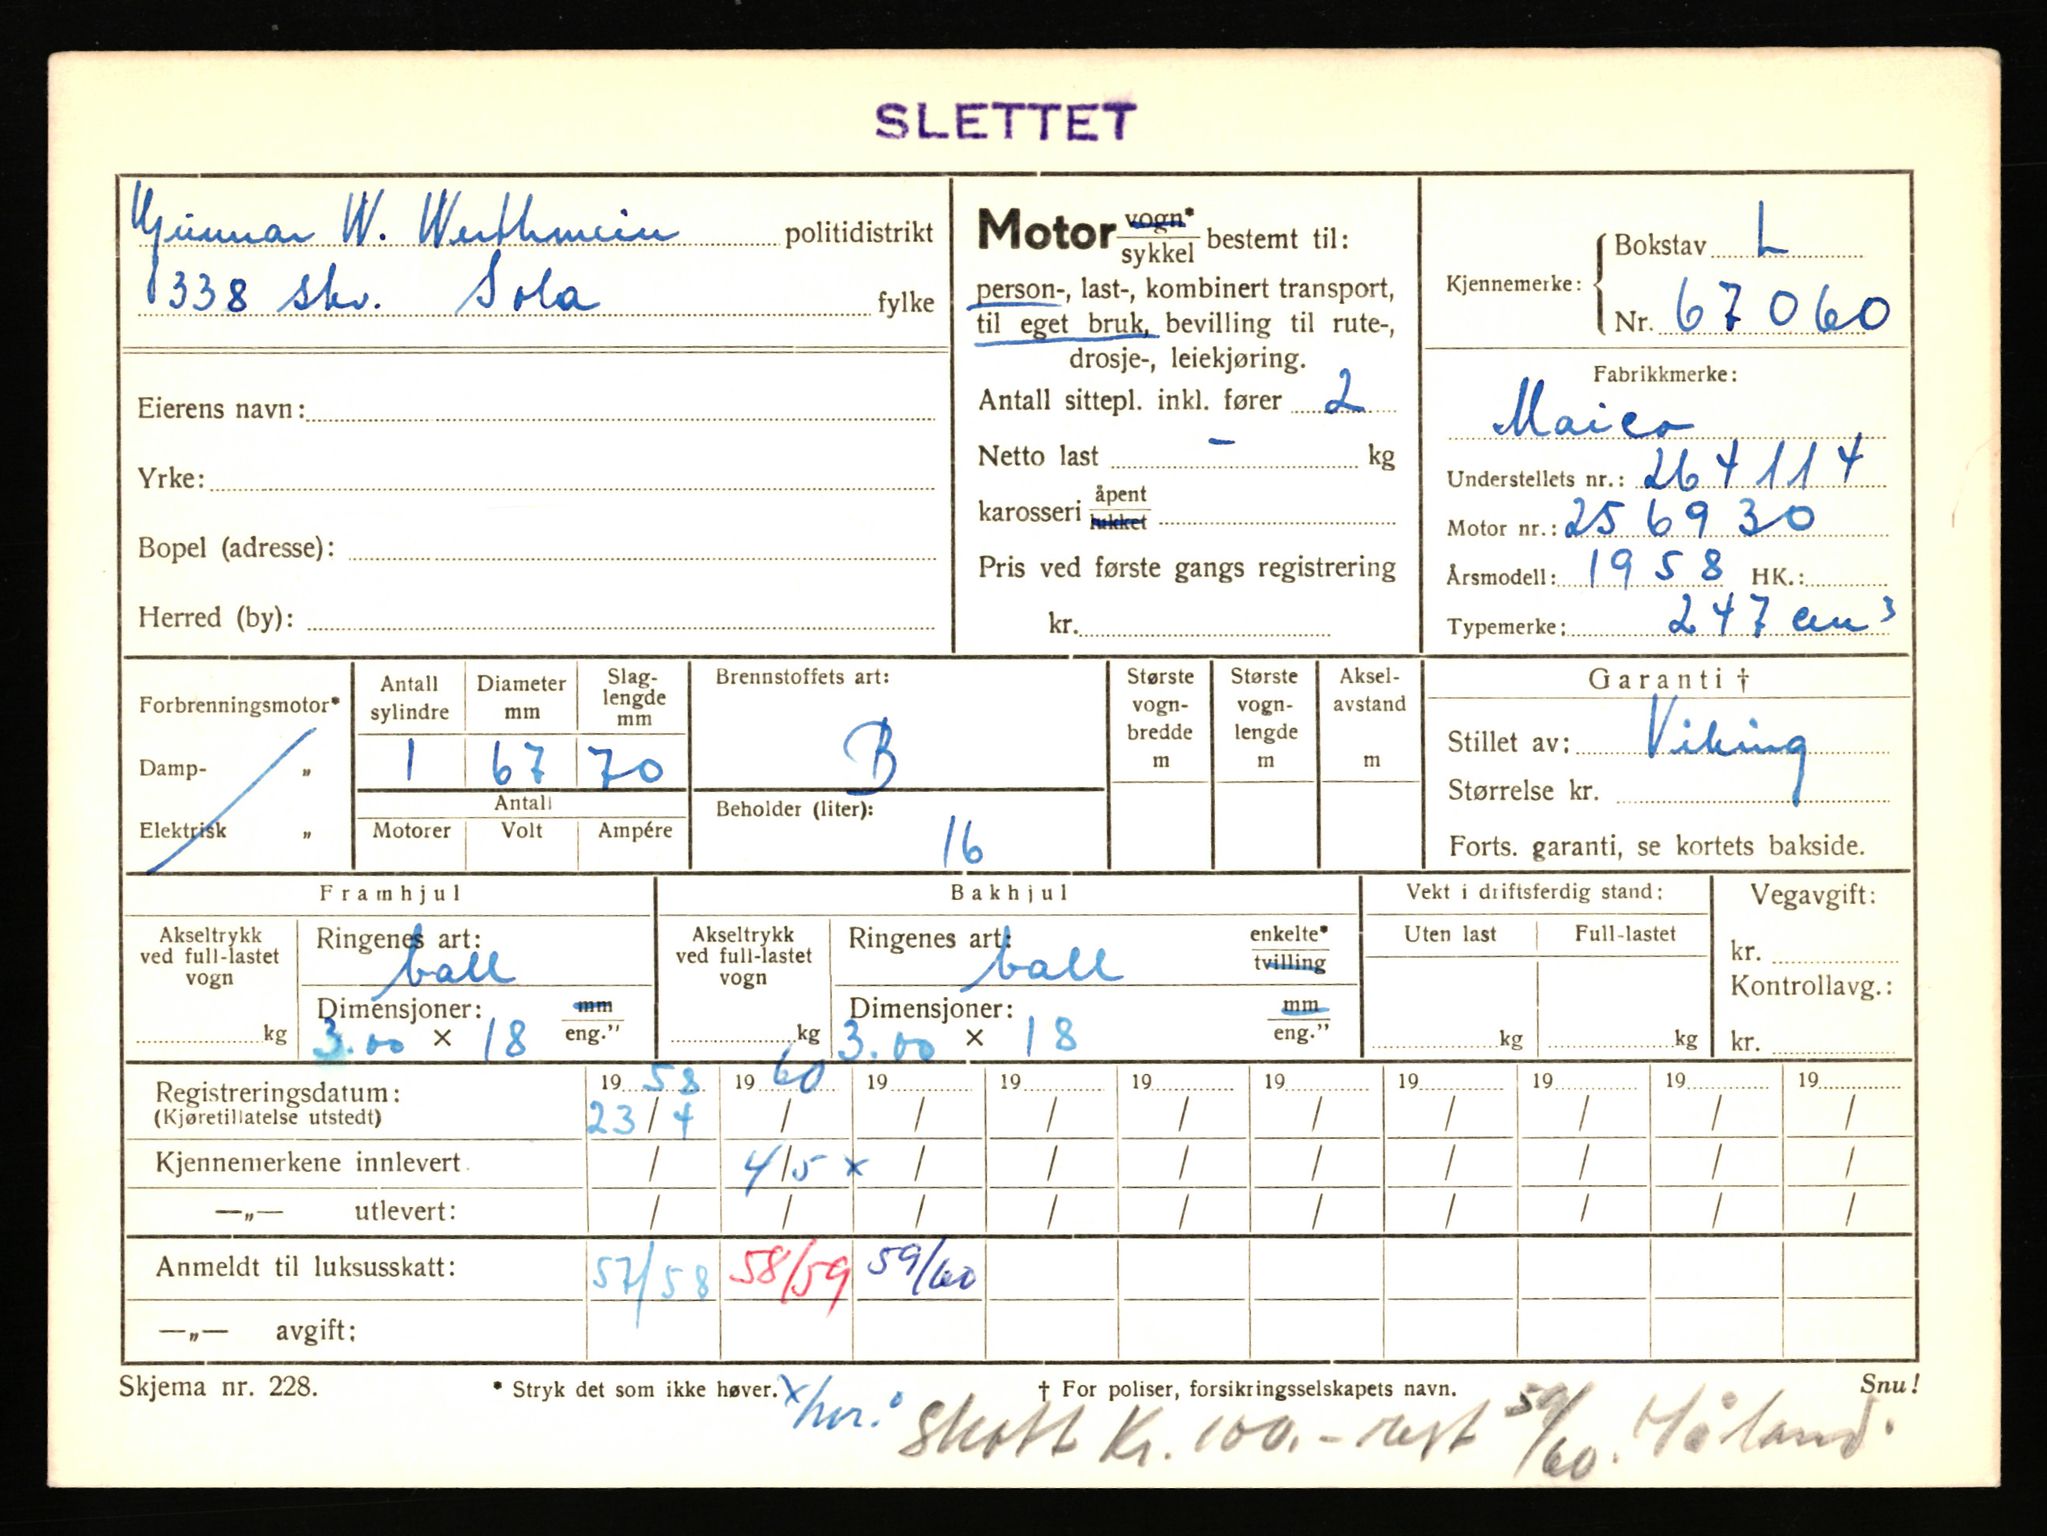 SLETTET
Gunnar W. Werthmein politidistrikt
338 skv. Sola fylke
Eierens navn:
Yrke:
Bopel (adresse):
Herred (by):
Motor vogn* / sykkel bestemt til:
person-, last-, kombinert transport,
til eget bruk, bevilling til rute-,
drosje-, leiekjøring.
Antall sittepl. inkl. fører 2
Netto last - kg
karosseri åpent / lukket
Pris ved første gangs registrering
kr.
Kjennemerke: Bokstav L
Nr. 67060
Fabrikkmerke:
Maico
Understellets nr.: 264114
Motor nr.: 256930
Årsmodell: 1958 HK.:
Typemerke: 247 cm³
Forbrenningsmotor*
Damp- „
Elektrisk „
Antall sylindre 1
Diameter mm 67
Slaglengde mm 70
Antall
Motorer Volt Ampére
Brennstoffets art:
B
Beholder (liter):
16
Største vogn-bredde m
Største vogn-lengde m
Aksel-avstand m
Garanti †
Stillet av: Viking
Størrelse kr.
Forts. garanti, se kortets bakside.
Framhjul
Akseltrykk ved full-lastet vogn kg
Ringenes art: ball
Dimensjoner: mm / eng."
3.00 × 18
Bakhjul
Akseltrykk ved full-lastet vogn kg
Ringenes art: ball enkelte* / tvilling
Dimensjoner: mm / eng."
3.00 × 18
Vekt i driftsferdig stand:
Uten last Full-lastet
kg kg
Vegavgift:
kr.
Kontrollavg.:
kr.
Registreringsdatum: 1958 1960 19 19 19 19 19 19 19 19
(Kjøretillatelse utstedt) 23/4 / / / / / / / / /
Kjennemerkene innlevert / 4/5 x / / / / / / / /
—„— utlevert: / / / / / / / / / /
Anmeldt til luksusskatt: 57/58 58/59 59/60
—„— avgift:
Skjema nr. 228. * Stryk det som ikke høver. † For poliser, forsikringsselskapets navn. Snu!
Skatt Kr. 100.- rest 59/60. Håland.